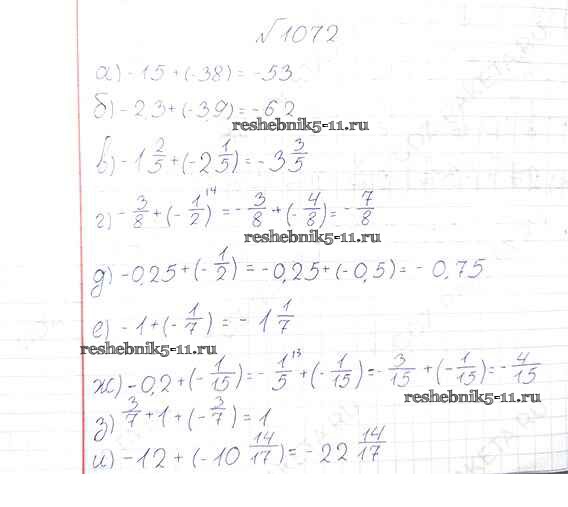 №1072
а) -15 + (-38) = -53
б) -2,3 + (-3,9) = -6,2
reshebnik5-11.ru
в) -1 2/5 + (-2 1/5) = -3 3/5
г) -3/8 + (-1/2)^14 = -3/8 + (-4/8) = -7/8
reshebnik5-11.ru
д) -0,25 + (-1/2) = -0,25 + (-0,5) = -0,75
е) -1 + (-1/7) = -1 1/7
reshebnik5-11.ru
ж) -0,2 + (-1/15) = -1/5^13 + (-1/15) = -3/15 + (-1/15) = -4/15
reshebnik5-11.ru
з) 3/7 + 1 + (-3/7) = 1
и) -12 + (-10 14/17) = -22 14/17